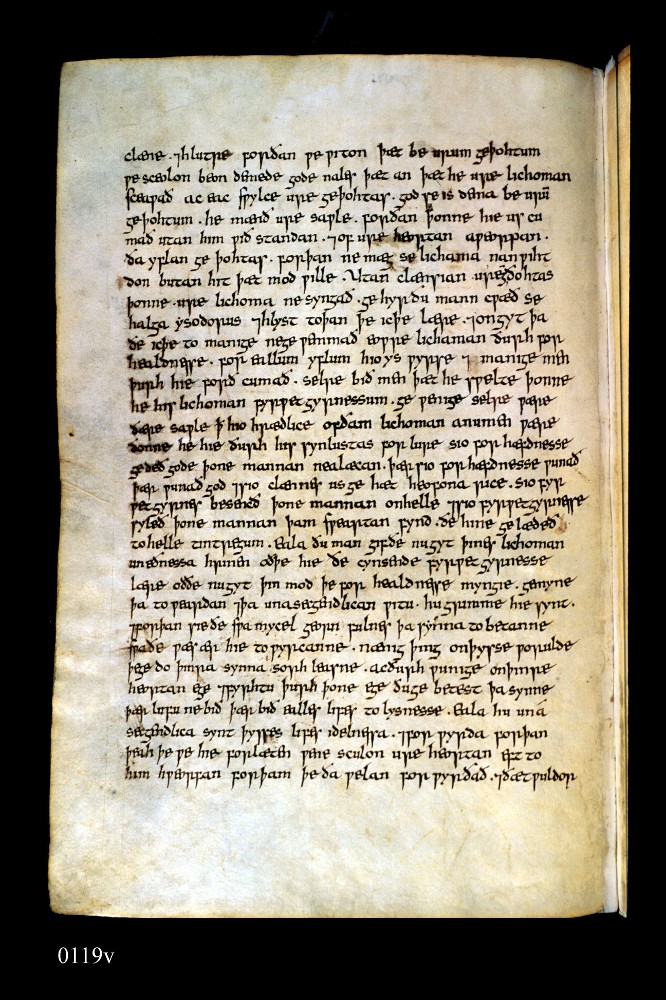 clæne · ⁊hlutre forðan ƿe ƿiton þæt be urum geþohtum
ƿe sceolon beon demede gode nales þæt an þæt he ure lichoman
sceaƿað ac eac sƿylce ure geþohtas · god se is dema be urū
geþohtum · he ure saƿle · forðan þonne hie us cu
mað utan him ƿið standan · ⁊of ure heortan aƿeorpan ·
ða yflan ge þohtas · forþan ne mæg se lichama nan ƿiht
don butan hit þæt mod ƿille · Utan clænsian
þonne · ure lichoma ne syngað · ge hyr ðu mann cƿæð se
halga ysodorus ⁊hlyst to þan þe ic þe lære · ⁊ongyt þa
ðe ic þe to manige ne ge ƿemmað eoƿre lichaman ðurh for
healdnesse · for eallum yflum hio ys ƿyrse ⁊ manige men
þurh hie forð cumað · selre bið men þæt he sƿelte þonne
he his lichoman fyrƿet gyrnessum · ge ƿenige selre ƿære
ðære saƿle þ̄ hio hrædlice of ðam lichoman ƿære
ðonne he hie ðurh his synlustas for lure sio for hæfdnesse
ge deð gode þone mannan nealæcan · þær sio for hæfdnesse ƿunað
þær ƿunað god ⁊sio clænnes us ge hæt heofona rice · sio fyr
ƿet gyrnes besenceð þone mannan on helle ⁊sio fyrƿet gyrnesse
syleð þone mannan þam sƿeartan fynd · ðe hine ge lædeð
to helle tintregum · Eala ðu man gif ðe nu gyt þines lichoman
unednessa hrinen oðþe hie ðe cynsende fyrƿet gyrnesse
lære oððe nu gyt þin mod þe for healdnesse myngie · gemyne
þa to ƿeardan ⁊þa unasecgendlican ƿitu · hu grimme hie synt ·
⁊forþan sie ðe sƿa mycel georn fulnes þa synna to betanne
sƿa ðe ƿæs ær hie to ƿyrcanne · næng þing on þysse ƿorulde
þe ge do þinra synna sorh leasne · ac ðurh ƿunige on þinre
heortan ege ⁊fyrhtu þurh þone ege ðu ge betest þa synne
þær lufu ne bið þær bið ealles lifes to lysnesse · Eala hu unā
secgendlica synt þysses lifes idelnessa · ⁊for ƿyrda forþan
þeah þe ƿe hie forlæten ƿene sculon ure heortan eft to
him hƿeorfan forþam þe ða ƿelan for ƿyrðað · ⁊ðæt ƿuldor
0119v